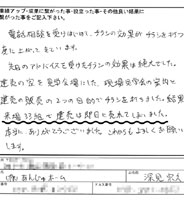 業績アップ・営業に繋がった事・役立った事・その他良い結果に
繋がった事をご記入下さい。
電話相談を受けはじめ、チラシの効果が
に上がって
先日のアドバイスを受けたチラシの効果は絶大でした。
建売の家を見学会場にした、現場見学会の案内と
建売の販売の2つの目的でチラシをまきました。結果
来場33組で建売は即日で売れてしまいました。
本当にありがとうございました。これからもよろしくお願いし
ます。
ホーム